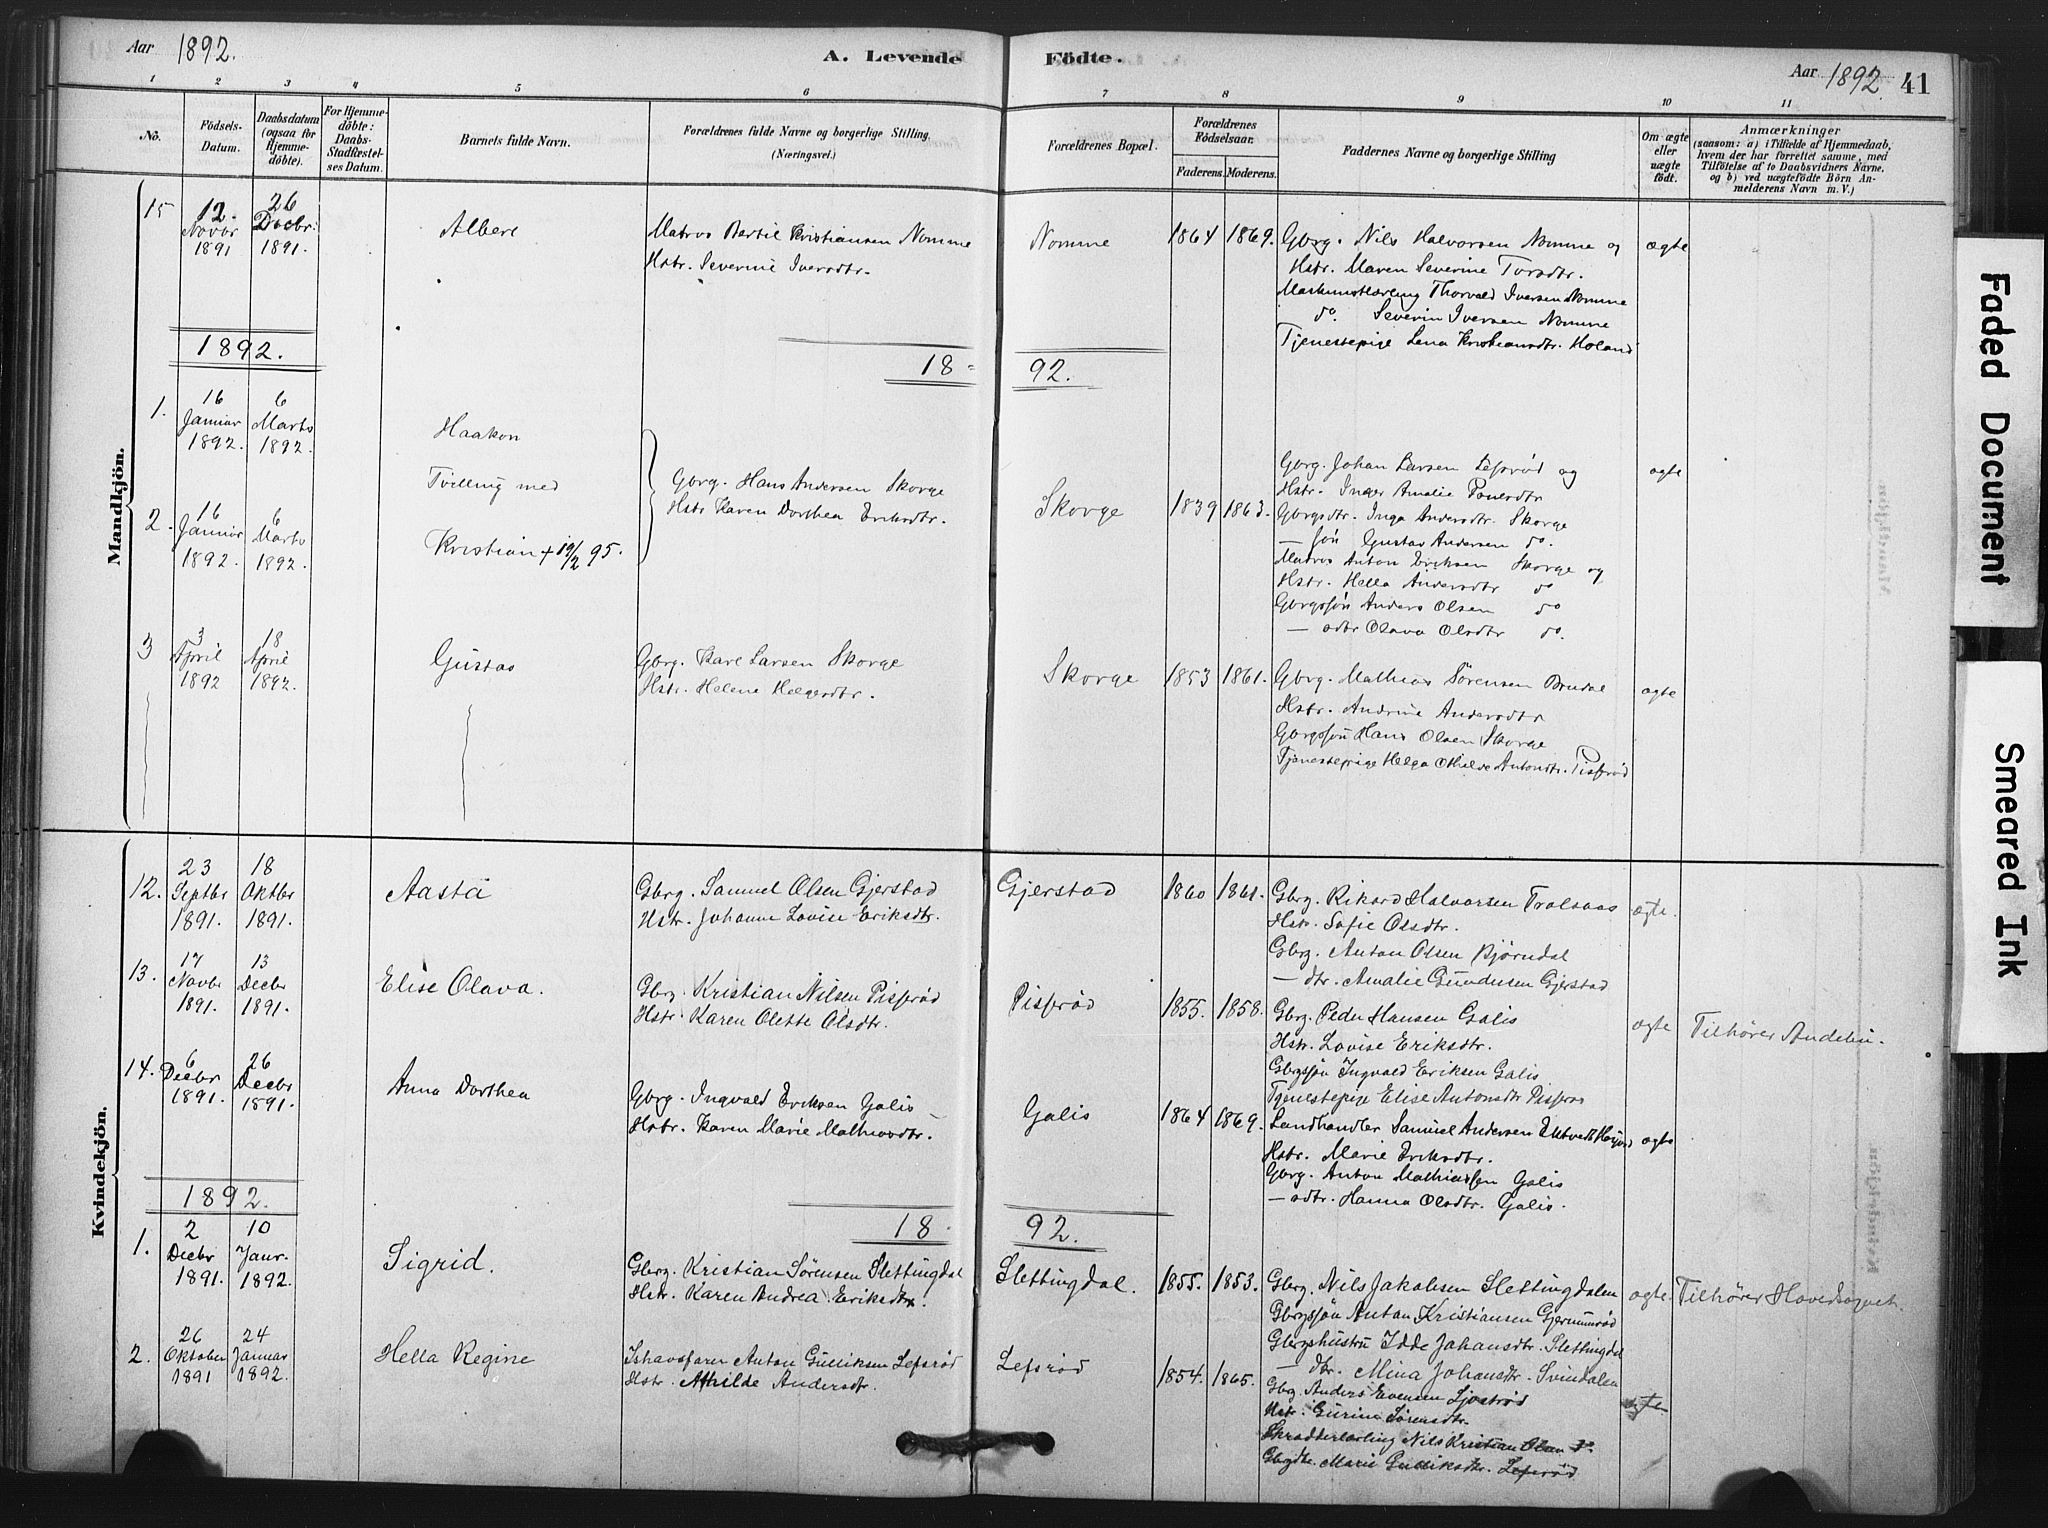 Aar 1892.
A. Levende Födte.
Aar 1892. 41
1 2 3 4 5 6 7 8 9 10 11
No.
Födsels-Datum.
Daabsdatum (ogsaa for Hjemme-döbte).
For Hjemme-döbte: Daabs-Stadfæstel-ses Datum.
Barnets fulde Navn.
Forældrenes fulde Navne og borgerlige Stilling.
(Næringsvei.)
Forældrenes Bopæl.
Forældrenes Födselsaar.
Faderens. Moderens.
Faddernes Navne og borgerlige Stilling
Om ægte eller uægte födt.
Anmærkninger
(saasom: a) i Tilfælde af Hjemmedaab,
hvem der har forrettet samme, med
Tilföielse af to Daabsvidners Navne,
og b) ved uægtefödte Börn An-
melderens Navn m. V.)
Mandkjön.
15 12. Novbr 1891 26 Decbr: 1891.
Albert
Matros Bertil Kristiansen Nomme
Hstr. Severine Iversdtr.
Nomme 1864 1869.
Gbrg. Nils Halvorsen Nomme og
Hstr. Maren Severine Torsdtr.
Maskinistlærling Thorvald Iversen Nomme
do. Severin Iversen Nomme
Tjenestepige Lena Kristiansdtr. Holand
ægte
1892.
18-92.
1. 16 Januar 1892. 6 Marts 1892.
Haakon
Tvilling med
2. 16 Januar 1892. 6 Marts 1892.
Kristian + 19/2 95.
Gbrg. Hans Andersen Skorge
Hstr Karen Dorthea Eriksdtr.
Skorge 1839 1863.
Gbrg. Johan Larsen Lefsrød og
Hstr. Inger Amalie
Gbrgsdtr. Inga Andersdtr. Skorge
— søn Gustav Andersen do.
Matros Anton Eriksen Skorge og
Hstr. Hella Andersdtr do
Gbrgssøn Anders Olsen do
— sdtr Olava Olsdtr do.
ægte
3 3 April 1892 18 April 1892.
Gustav
Gbrg. Karl Larsen Skorge
Hstr. Helene Helgesdtr.
Skorge 1853 1861.
Gbrg. Mathias Sörensen Brudal
Hstr. Andrine Andersdtr
Gbrgssøn Hans Olsen Skorge
Tjenestepige Helga Othilde Antonsdtr. Pisserød
ægte
Kvindekjön.
12. 23 Septbr 1891. 18 Oktbr 1891.
Aasta
Gbrg. Samuel Olsen Gjerstad
Hstr. Johanne Lovise Eriksdtr.
Gjerstad 1860 1861.
Gbrg. Rikard Halvorsen Tralsaas
Hstr. Sofie Olsdtr.
Gbrg. Anton Olsen Bjørndal
— dtr. Amalie Gundersen Gjerstad
ægte.
13. 17 Novbr 1891. 13 Decbr 1891.
Elise Olava.
Gbrg. Kristian Nilsen Pisserød
Hstr. Karen Olette Olsdtr.
Pisserød 1855. 1858.
Gbrg. Peder Hansen Galis
Hstr. Lovise Eriksdtr.
Gbrgssøn Ingvald Eriksen Galis
Tjenestepige Elise Antonsdtr
ægte
Tilhører Andebu.
14. 6 Decbr 1891. 26 Decbr 1891.
Anna Dorthea
Gbrg. Ingvald Eriksen Galis
Hstr. Karen Marie Mathiasdtr.
Galis 1864 1869.
Landhandler Samuel Andersen
Hstr. Marie Eriksdtr.
Gbrg. Anton Mathiassen Galis
— sdtr. Hanna Olsdtr. Galis.
ægte
1892.
18 92.
1. 2 Decbr 1891. 10 Janr. 1892.
Sigrid.
Gbrg. Kristian Sørensen Slettingdal
Hstr. Karen Andrea Eriksdtr.
Slettingdal. 1855. 1853.
Gbrg. Nils Jakobsen Slettingdalen
Gbrgssøn Anton Kristiansen Gjermunrød
Gbrgshustru Idde Johansdtr. Slettingdal
— dtr. Mina Johansdtr. Svindalen
ægte.
Tilhører Hovedsognet.
2. 26 Oktober 1891 24 Januar 1892.
Hella Regine
Ishavsfarer Anton Gulliksen Lefsrød
Hstr. Athilde Andersdtr.
Lefsrød 1854. 1865.
Gbrg. Anders Evensen Ljostrød
Hstr. Gurine Sørensdtr.
Skrædderlærling Nils Kristian Olsen do.
Gbrgdtr. Marie Gulliksdtr. Lefsrød
ægte
Faded Document
Smeared Ink